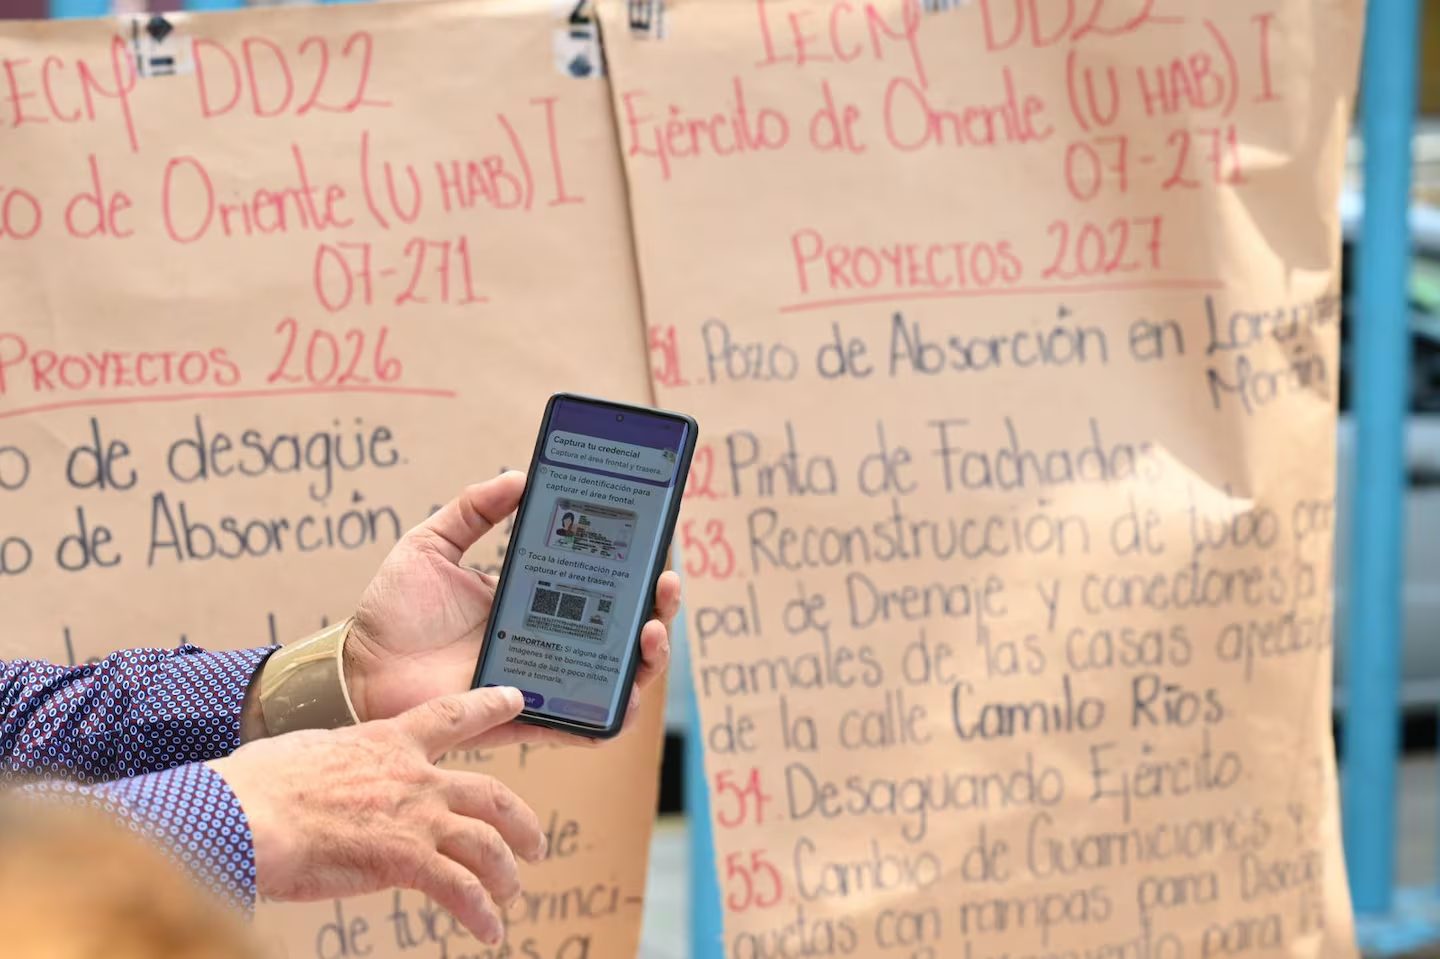 IECM DD22
to de Oriente (U HAB) I
07-271
PROYECTOS 2026
de desagüe.
de Absorción
de.
de tubo princi-
a
IECM DD22
Ejército de Oriente (U HAB) I
07-271
PROYECTOS 2027
51. Pozo de Absorción en Lorenzo
Morán
52. Pinta de Fachadas
53. Reconstrucción de tubo
pal de Drenaje y conectores
ramales de las casas
de la calle Camilo Ríos.
54. Desaguando Ejército.
55. Cambio de Guarniciones y
quetas con rampas para
para
Captura tu credencial
Captura el área frontal y trasera.
Toca la identificación para
capturar el área frontal.
Toca la identificación para
capturar el área trasera.
IMPORTANTE: Si alguna de las
imágenes se ve borrosa, oscura,
saturada de luz o poco nítida,
vuelve a tomarla.